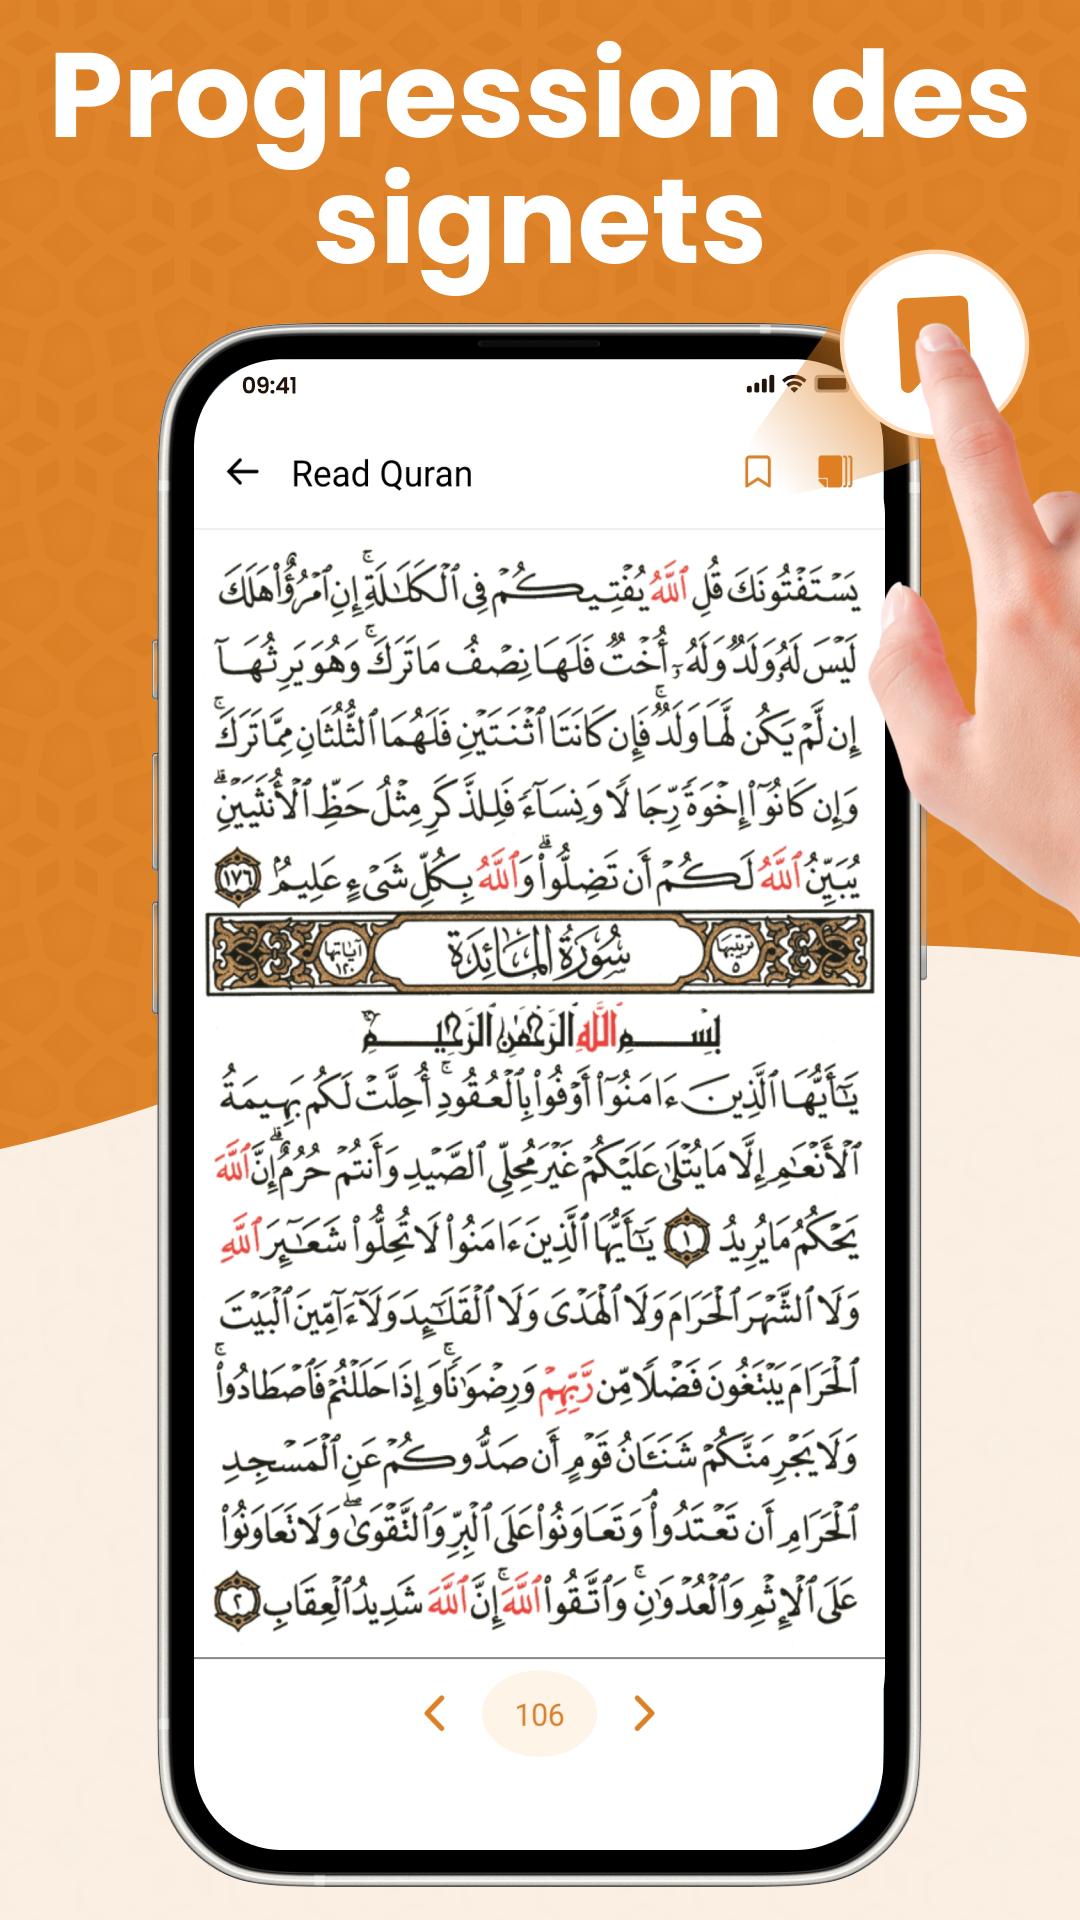 Progression des
signets
09:41
Read Quran
يَسْتَفْتُونَكَ قُلِ ٱللَّهُ يُفْتِيكُمْ فِى ٱلْكَلَٰلَةِ ۚ إِنِ ٱمْرُؤٌا۟ هَلَكَ
لَيْسَ لَهُۥ وَلَدٌ وَلَهُۥٓ أُخْتٌ فَلَهَا نِصْفُ مَا تَرَكَ ۚ وَهُوَ يَرِثُهَآ
إِن لَّمْ يَكُن لَّهَا وَلَدٌ ۚ فَإِن كَانَتَا ٱثْنَتَيْنِ فَلَهُمَا ٱلثُّلُثَانِ مِمَّا تَرَكَ ۚ
وَإِن كَانُوٓا۟ إِخْوَةً رِّجَالًا وَنِسَآءً فَلِلذَّكَرِ مِثْلُ حَظِّ ٱلْأُنثَيَيْنِ ۗ
يُبَيِّنُ ٱللَّهُ لَكُمْ أَن تَضِلُّوا۟ ۗ وَٱللَّهُ بِكُلِّ شَىْءٍ عَلِيمٌۢ ١٧٦
ترتيبها ٥ سُورَةُ المَائِدَة آياتها ١٢٠
بِسْمِ ٱللَّهِ ٱلرَّحْمَٰنِ ٱلرَّحِيمِ
يَٰٓأَيُّهَا ٱلَّذِينَ ءَامَنُوٓا۟ أَوْفُوا۟ بِٱلْعُقُودِ ۚ أُحِلَّتْ لَكُم بَهِيمَةُ
ٱلْأَنْعَٰمِ إِلَّا مَا يُتْلَىٰ عَلَيْكُمْ غَيْرَ مُحِلِّى ٱلصَّيْدِ وَأَنتُمْ حُرُمٌ ۗ إِنَّ ٱللَّهَ
يَحْكُمُ مَا يُرِيدُ ١ يَٰٓأَيُّهَا ٱلَّذِينَ ءَامَنُوا۟ لَا تُحِلُّوا۟ شَعَٰٓئِرَ ٱللَّهِ
وَلَا ٱلشَّهْرَ ٱلْحَرَامَ وَلَا ٱلْهَدْىَ وَلَا ٱلْقَلَٰٓئِدَ وَلَآ ءَآمِّينَ ٱلْبَيْتَ
ٱلْحَرَامَ يَبْتَغُونَ فَضْلًا مِّن رَّبِّهِمْ وَرِضْوَٰنًا ۚ وَإِذَا حَلَلْتُمْ فَٱصْطَادُوا۟ ۚ
وَلَا يَجْرِمَنَّكُمْ شَنَـَٔانُ قَوْمٍ أَن صَدُّوكُمْ عَنِ ٱلْمَسْجِدِ
ٱلْحَرَامِ أَن تَعْتَدُوا۟ ۘ وَتَعَاوَنُوا۟ عَلَى ٱلْبِرِّ وَٱلتَّقْوَىٰ ۖ وَلَا تَعَاوَنُوا۟
عَلَى ٱلْإِثْمِ وَٱلْعُدْوَٰنِ ۚ وَٱتَّقُوا۟ ٱللَّهَ ۖ إِنَّ ٱللَّهَ شَدِيدُ ٱلْعِقَابِ ٢
106